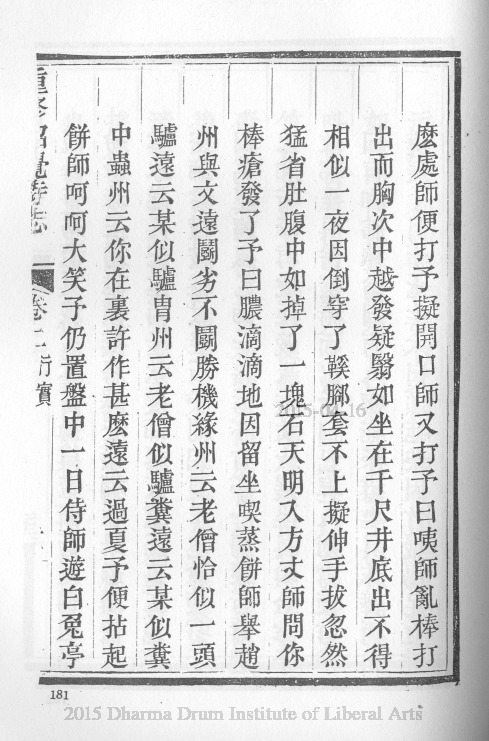 麽處師便打予擬開口師又打予曰咦師亂棒打
出而胸次中越發疑翳如坐在千尺井底出不得
相似一夜因倒穿了鞵腳套不上擬伸手拔忽然
猛省肚腹中如掉了一塊石天明入方丈師問你
棒瘡發了予曰膿滴滴地因留坐喫蒸餅師舉趙
州與文遠鬭劣不鬭勝機緣州云老僧恰似一頭
驢遠云某似驢胄州云老僧似驢糞遠云某似糞
中蟲州云你在裏許作甚麽遠云過夏予便拈起
餅師呵呵大笑予仍置盤中一日侍師遊白兔亭
重修昭覺寺志 卷二 行實
181
2015-04-16
2015 Dharma Drum Institute of Liberal Arts